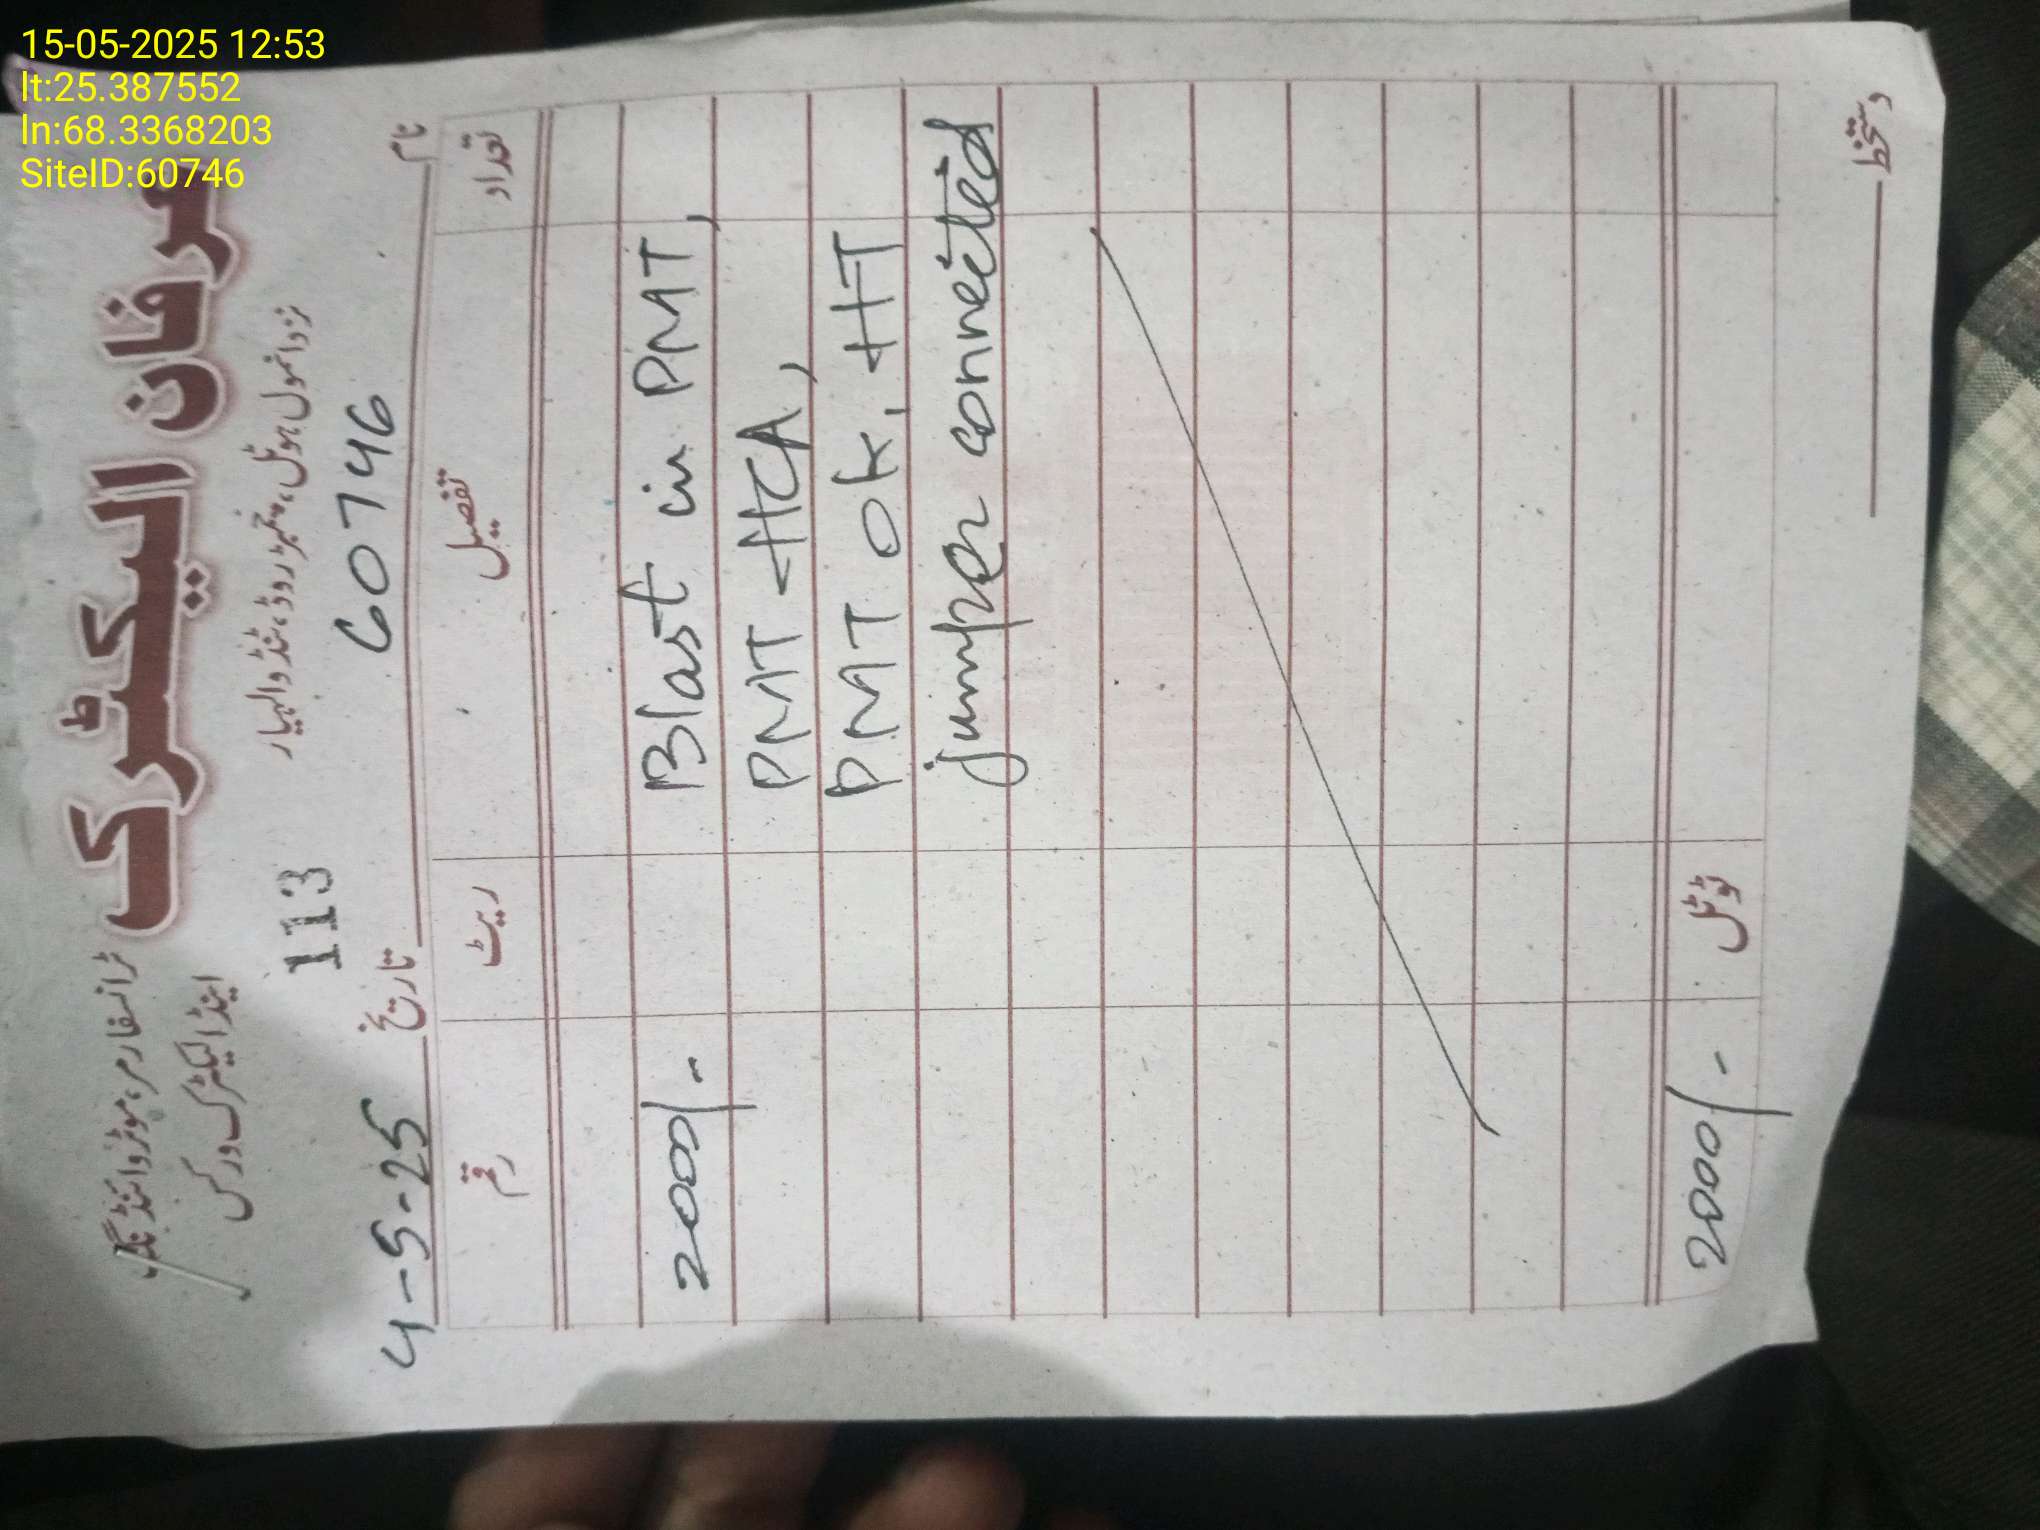 15-05-2025 12:53
lt:25.387552
ln:68.3368203
SiteID:60746
عرفان الیکٹرک
ٹرانسفارمر، موٹر وائنڈنگ
اینڈ الیکٹرک ورکس
نزد انمول ہوٹل، میرپور روڈ، ٹنڈوالہیار
113
نام 60746 تاریخ 4-5-25
تعداد تفصیل ریٹ رقم
Blast in PMT, 2000/-
PMT HCA,
PMT ok, HT
jumper connected
ٹوٹل 2000/-
دستخط